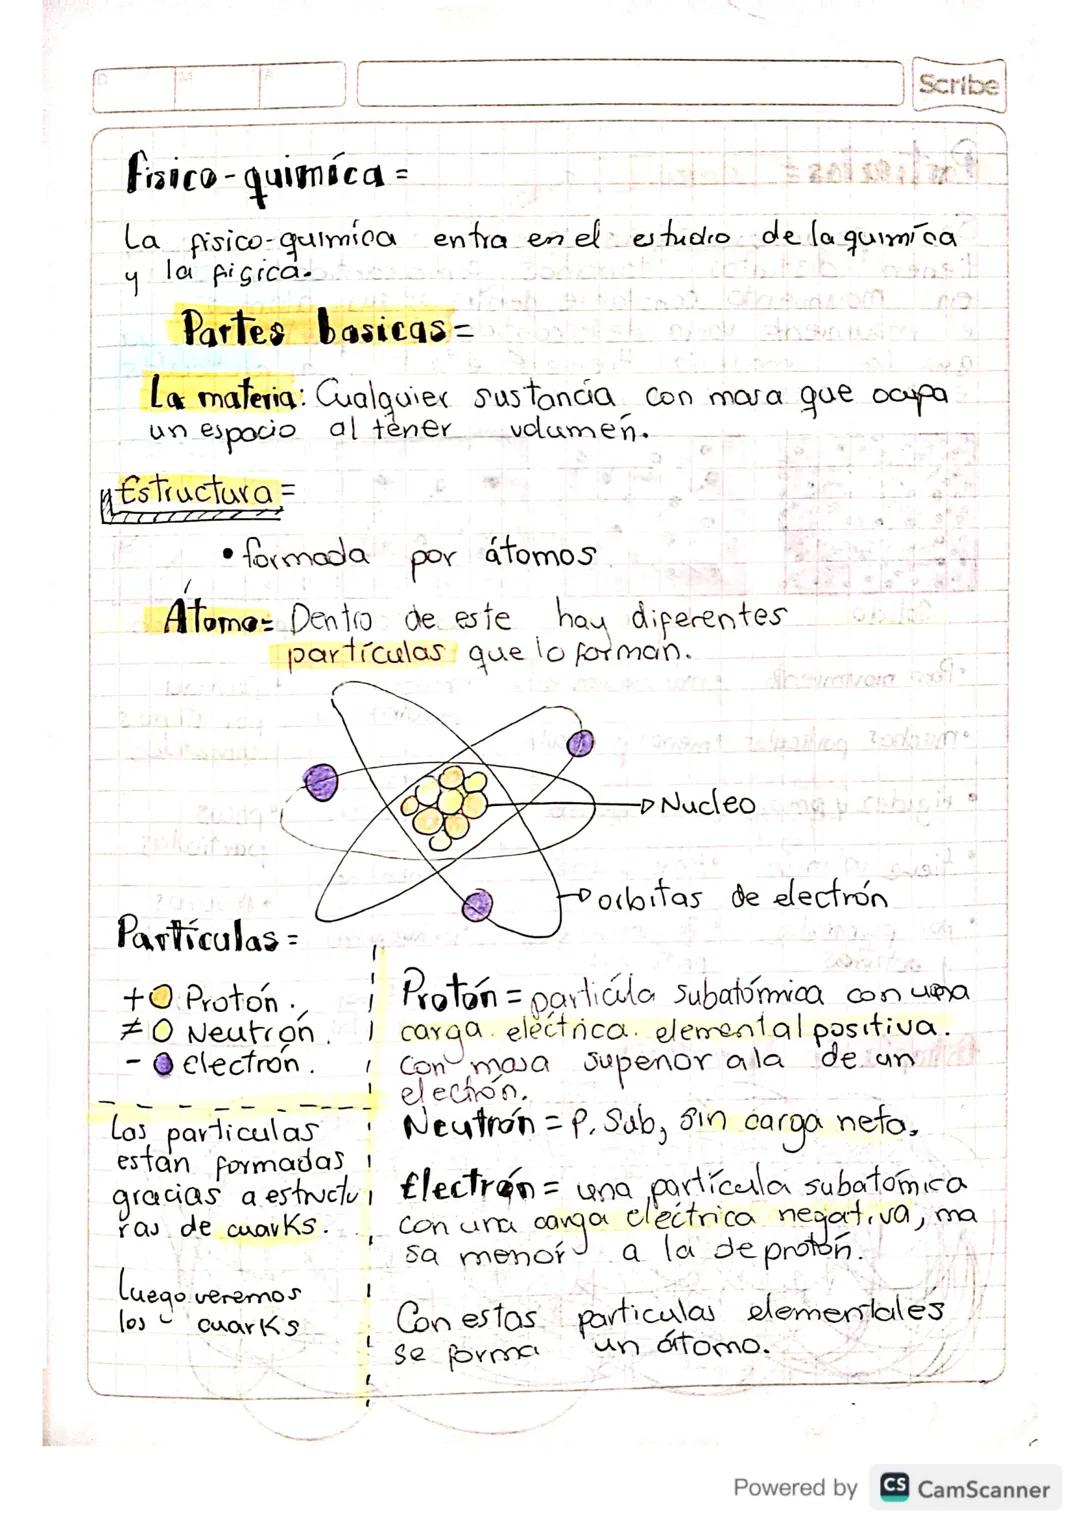 D M A
Scribe
Fisico-quimíca =
La fisico-quimica entra en el estudio de la quimíca
y la figica.
Partes basicas=
La materia: Cualquier sustancia con masa que ocupa
un espacio al tener volumen.
Estructura=
• formada por átomos
Átomo= Dentro de este hay diferentes
partículas que lo forman.
Nucleo
orbitas de electrón
Partículas=
+ Protón.
≠ Neutrón.
- electrón.
Las particulas
están formadas
gracias a estructu
ras de cuarks.
Luego veremos
los cuarks
Protón = particúla subatómica con una
carga eléctrica elemental positiva.
con masa superior a la de un
electrón.
Neutrón = P. Sub, sin carga neta.
Electrón = una partícula subatomica
con una carga eléctrica negativa, ma
sa menor a la de protón.
Con estas particulas elementales
se forma un átomo.
Powered by CS CamScanner